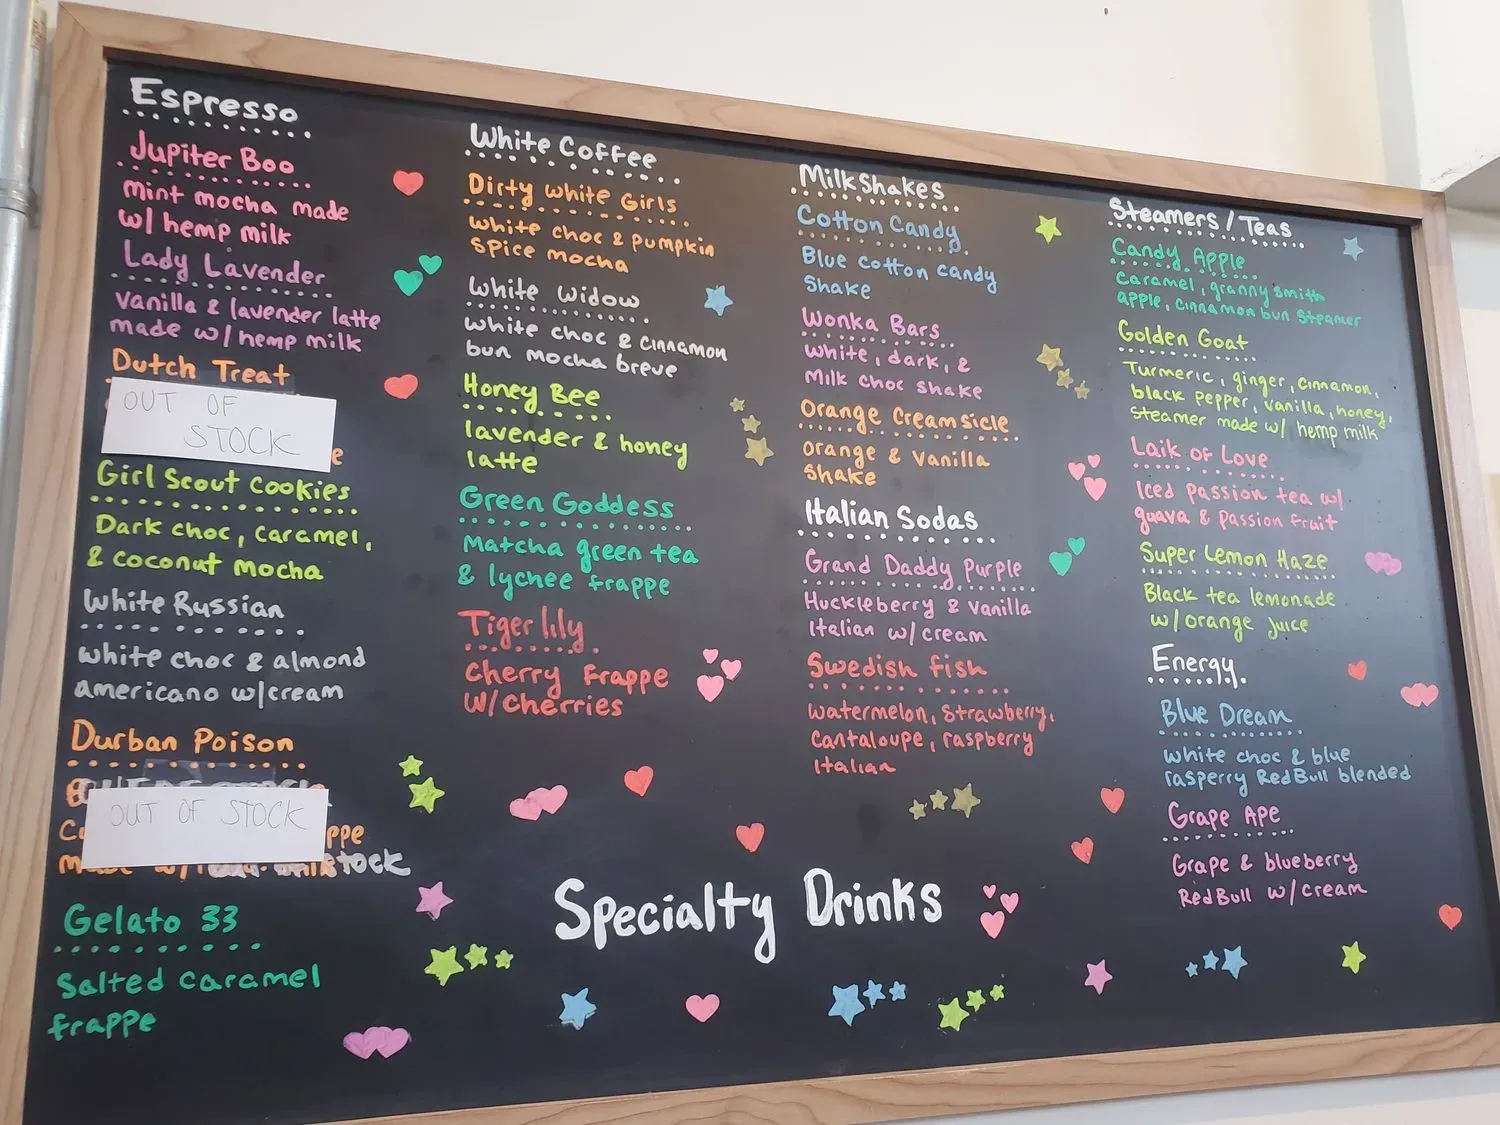 Espresso
Jupiter Boo
mint mocha made
w/ hemp milk
Lady Lavender
vanilla & lavender latte
made w/ hemp milk
Dutch Treat
OUT OF
STOCK
Girl Scout Cookies
Dark choc, caramel,
& coconut mocha
White Russian
white choc & almond
americano w/cream
Durban Poison
OUT OF STOCK
STOCK
Gelato 33
Salted caramel
frappe
White Coffee
Dirty white Girls
white choc & pumpkin
spice mocha
White Widow
white choc & cinnamon
bun mocha breve
Honey Bee
lavender & honey
latte
Green Goddess
Matcha green tea
& lychee frappe
Tiger lily
Cherry Frappe
w/cherries
MilkShakes
Cotton Candy
Blue cotton candy
Shake
Wonka Bars
white, dark, &
Milk choc shake
Orange Creamsicle
orange & vanilla
Shake
Italian Sodas
Grand Daddy Purple
Huckleberry & vanilla
Italian w/cream
Swedish fish
watermelon, strawberry,
cantaloupe, raspberry
Italian
Steamers / Teas
Candy Apple
Caramel, granny smith
apple, cinnamon bun steamer
Golden Goat
Turmeric, ginger, cinnamon,
black pepper, vanilla, honey,
steamer made w/ hemp milk
Laik of Love
Iced passion tea w/
guava & passion fruit
Super Lemon Haze
Black tea lemonade
w/ orange juice
Energy
Blue Dream
white choc & blue
rasperry RedBull blended
Grape Ape
Grape & blueberry
RedBull w/cream
Specialty Drinks